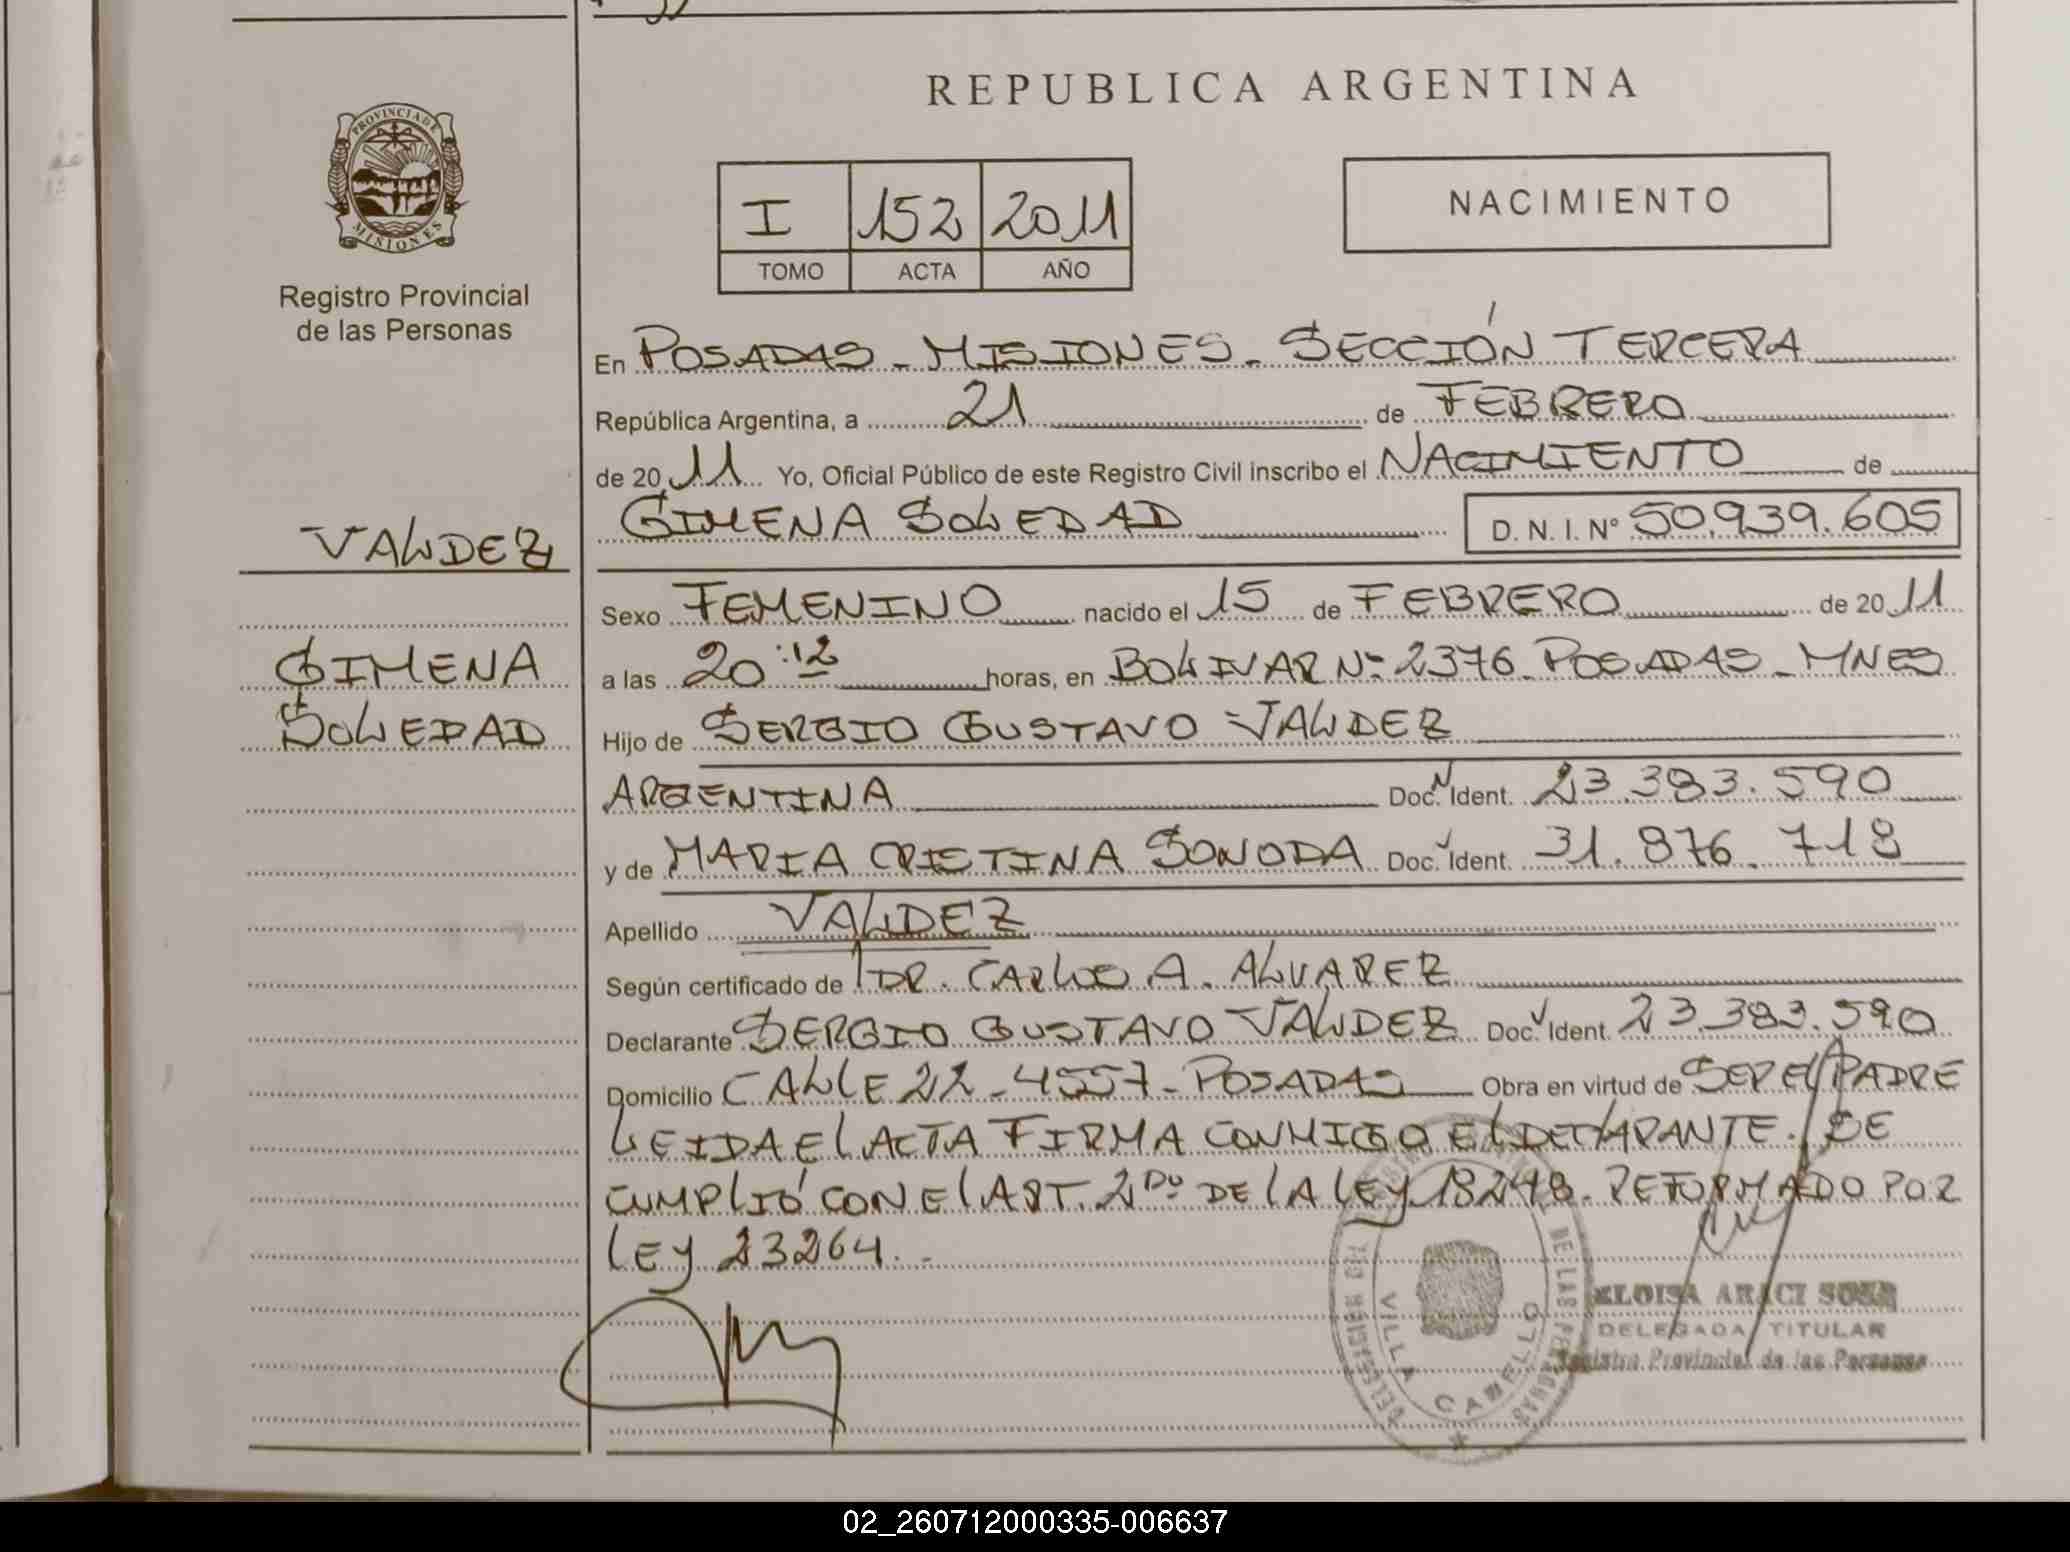 REPUBLICA ARGENTINA
PROVINCIA DE
MISIONES
Registro Provincial
de las Personas
I 152 2011
TOMO ACTA AÑO
NACIMIENTO
En POSADAS - MISIONES - SECCIÓN TERCERA
República Argentina, a 21 de FEBRERO
de 2011 Yo, Oficial Público de este Registro Civil inscribo el NACIMIENTO de
GIMENA SOLEDAD D. N. I. Nº 50.939.605
VALDEZ
GIMENA
SOLEDAD
Sexo FEMENINO nacido el 15 de FEBRERO de 2011
a las 20:12 horas, en BOLIVAR Nº 2376 - POSADAS - MNES
Hijo de SERGIO GUSTAVO VALDEZ
ARGENTINA Doc. Ident. 23.383.590
y de MARIA CRISTINA SONODA Doc. Ident. 31.876.718
Apellido VALDEZ
Según certificado de DR. CARLOS A. ALVAREZ
Declarante SERGIO GUSTAVO VALDEZ Doc. Ident. 23.383.590
Domicilio CALLE 22 - 4557 - POSADAS Obra en virtud de SER EL PADRE
LEIDA EL ACTA FIRMA CONMIGO EL DECLARANTE. SE
CUMPLIÓ CON EL ART. 2DO DE LA LEY 18248. REFORMADO POR
LEY 23264. -
VILLA CABELLO
DE LAS PERSONAS
ELOISA ARACI SOSA
DELEGADA TITULAR
Registro Provincial de las Personas
02_260712000335-006637